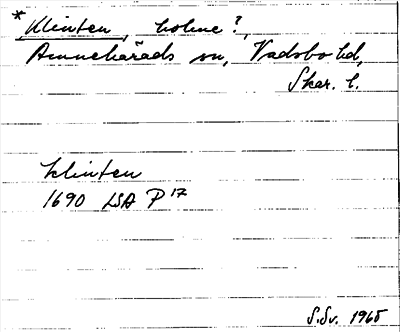 *Klinten, holme?,
Amnehärads sn, Vadsbo hd,
Skar. l.
Klinten
1690 LSA P 17
S.Sv. 1965